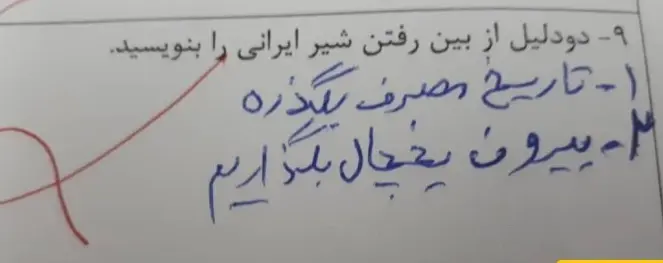 ۹- دودلیل از بین رفتن شیر ایرانی را بنویسید.
۱- تاریخ مصرف بگذره
۲- بیرون یخچال بگذاریم